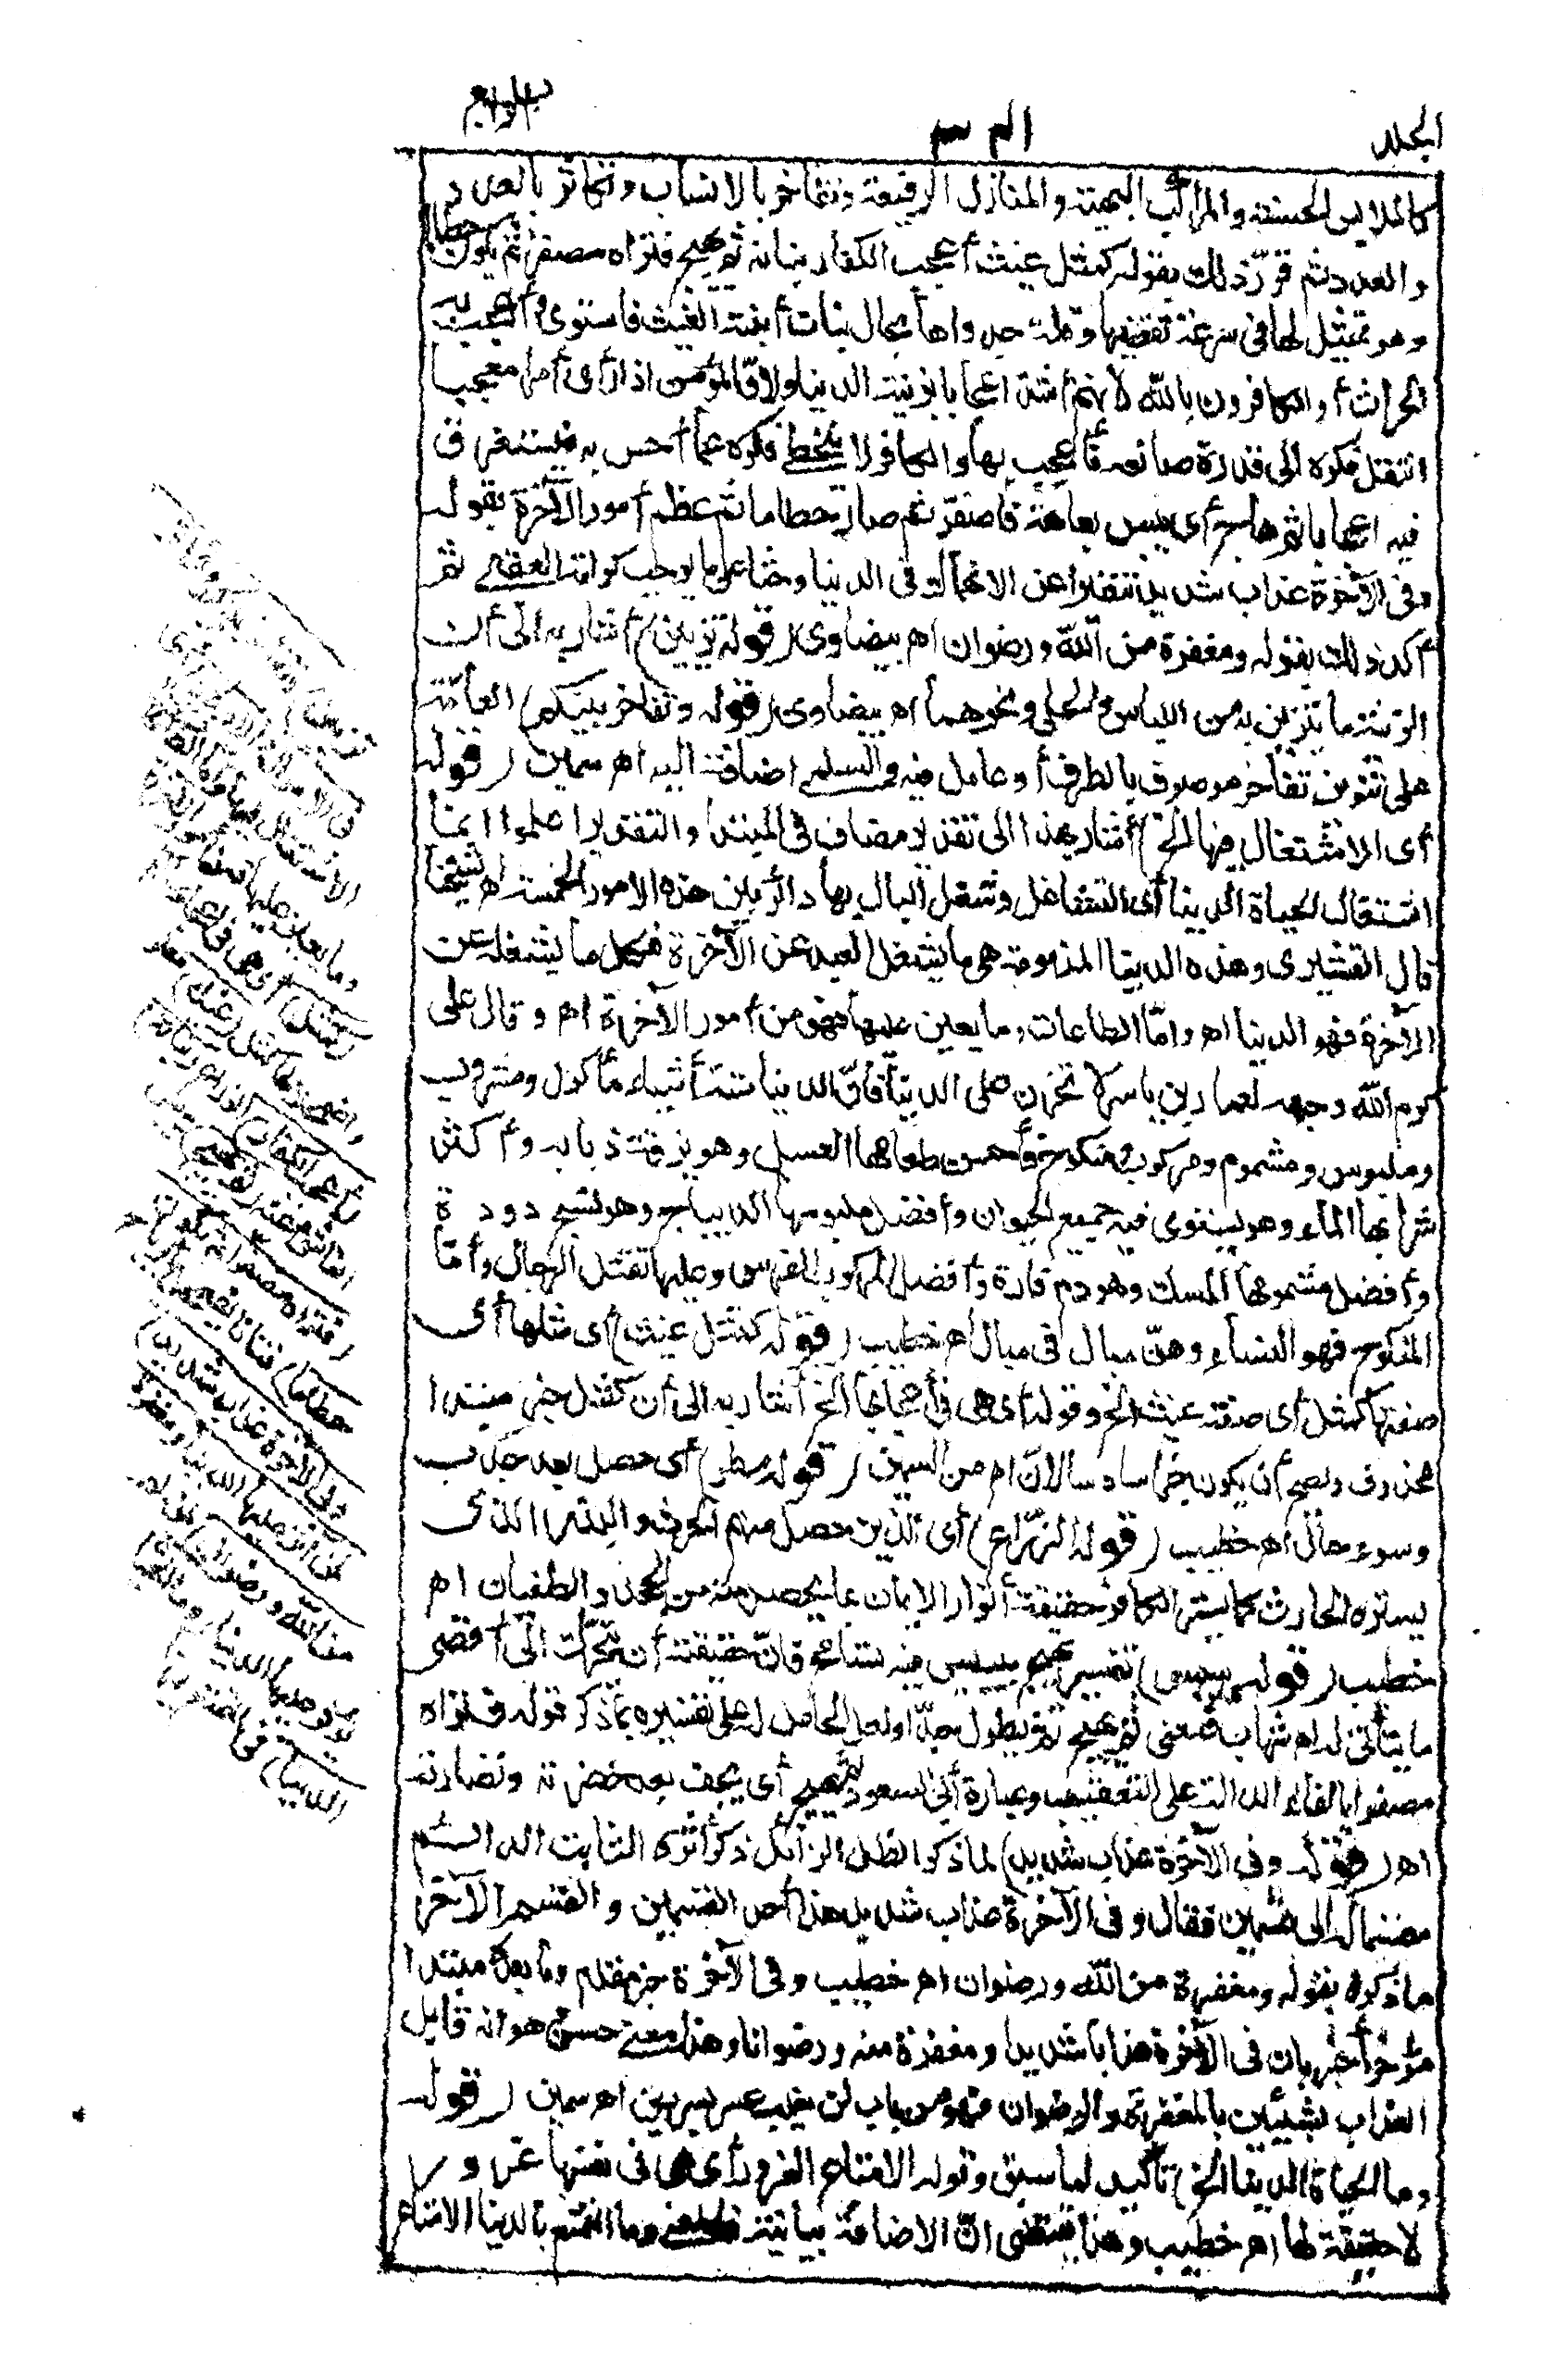 الجلد
الرابع
كالملابس الحسنة والمراكب البهية والمنازل الرفيعة وتفاخر بالانساب وتكاثر بالعدد
والعدد ثم قرّر ذلك بقوله كمثل غيث أعجب الكفار نباته ثم يهيج فتراه مصفرا ثم يكون حطاما
وهو تمثيل لها فى سرعة تقضيها وقلة جدواها بحال نبات أنبته الغيث فاستوى وأعجب به
الحراث أو الكافرون بالله لأنهم أشد اعجابا بزينة الدنيا ولانّ المؤمن اذا رأى أمرا معجبا
انتقل فكره الى قدرة صانعه فأعجب بها والكافر لا يتخطى فكره عما أحس به فيستغرق
فيه اعجابا ثم هاج أى يبس بعاهة فاصفرّ ثم صار حطاما ثم عظم أمور الآخرة بقوله
وفى الآخرة عذاب شديد تنفيرا عن الانهماك فى الدنيا وحثا على ما يوجب كرامة العقبى ثم
أكد ذلك بقوله ومغفرة من الله ورضوان اهـ بيضاوى (قوله تزيين) أشار به الى أن
الزينة ما يتزين به من اللباس والحلى ونحوهما اهـ بيضاوى (قوله وتفاخر بينكم) العامّة
على تنوين تفاخر موصوف بالظرف أو عامل فيه والسلمى اضافته اليه اهـ سمين (قوله
أى الاشتغال فيها الخ) أشار بهذا الى تقدير مضاف فى المبتدا والتقدير اعلموا انما
اشتغال الحياة الدنيا أى التشاغل وشغل البال بها دائر بين هذه الامور الخمسة اهـ شيخنا
قال القشيرى وهذه الدنيا المذمومة هى ما يشغل العبد عن الآخرة فكل ما يشغله عن
الآخرة فهو الدنيا اهـ وامّا الطاعات وما يعين عليها فهو من أمور الآخرة اهـ وقال على
كرم الله وجهه لعمار بن ياسر لا تحزن على الدنيا فانّ الدنيا ستة أشياء مأكول ومشروب
وملبوس ومشموم ومركوب ومنكوح فأحسن طعامها العسل وهو بزقة ذبابة وأكثر
شرابها الماء وهو يستوى فيه جميع الحيوان وأفضل ملبوسها الديباج وهو نسج دودة
وأفضل مشمومها المسك وهو دم فارة وأفضل المركوب الفرس وعليها تقتل الرجال وأمّا
المنكوح فهو النساء وهنّ مبال فى مبال اهـ خطيب (قوله كمثل غيث) أى مثلها أى
صفتها كمثل أى صفة غيث الخ وقوله أى هى فى اعجابها الخ أشار به الى أن كمثل خبر مبتدا
محذوف ويصح أن يكون خبرا سادسا لانّ اهـ من السمين (قوله مطر) أى حصل بعد جدب
وسوء حال اهـ خطيب (قوله الزرّاع) أى الذين حصل منهم الحرث والبذر الذى
يستره الحارث كما يستر الكافر حقيقة أنوار الايمان بما يحصل منه من الجحد والطغيان اهـ
خطيب (قوله ييبس) تفسير يهيج بييبس فيه تسامح فانّ حقيقته أن يتحرّك الى أقصى
ما يتأتى له اهـ شهاب فمعنى ثم يهيج ثم يطول جدّا ولعل الحامل له على تفسيره بما ذكر قوله فتراه
مصفرا بالفاء الدالة على التعقيب وعبارة أبى السعود ثم يهيج أى يجف بعد خضرته ونضارته
اهـ (قوله وفى الآخرة عذاب شديد) لما ذكر الظل الزائل ذكر أثره الثابت الدائم
مقسما له الى قسمين فقال وفى الآخرة عذاب شديد هذا أحد القسمين والقسم الآخر
ما ذكره بقوله ومغفرة من الله ورضوان اهـ خطيب وفى الآخرة خبر مقدم وما بعده مبتدا
مؤخر أخبر بان فى الآخرة عذابا شديدا ومغفرة منه ورضوانا وهذا معنى حسن هو انه قابل
العذاب بشيئين بالمغفرة والرضوان فهو من باب لن يغلب عسر يسرين اهـ سمين (قوله
وما الحياة الدنيا الخ) تأكيد لما سبق وقوله الا متاع الغرور أى هى فى نفسها غرور
لا حقيقة لها اهـ خطيب وهذا يقتضى انّ الاضافة بيانية وما التمتع بالدنيا الا متاع
الاشتغال فيها
وما يعين عليها
(كمثل) أى هى فى اعجابها
واضمحلالها كمثل (غيث) مطر
(أعجب الكفار) الزراع (نباته)
(فتراه مصفرا ثم يكون
حطاما) فتاتا
(وفى الآخرة عذاب شديد)
لمن آثر عليها الدنيا (ومغفرة
من الله ورضوان) لمن لم
يؤثر عليها الدنيا (وما الحياة
الدنيا)